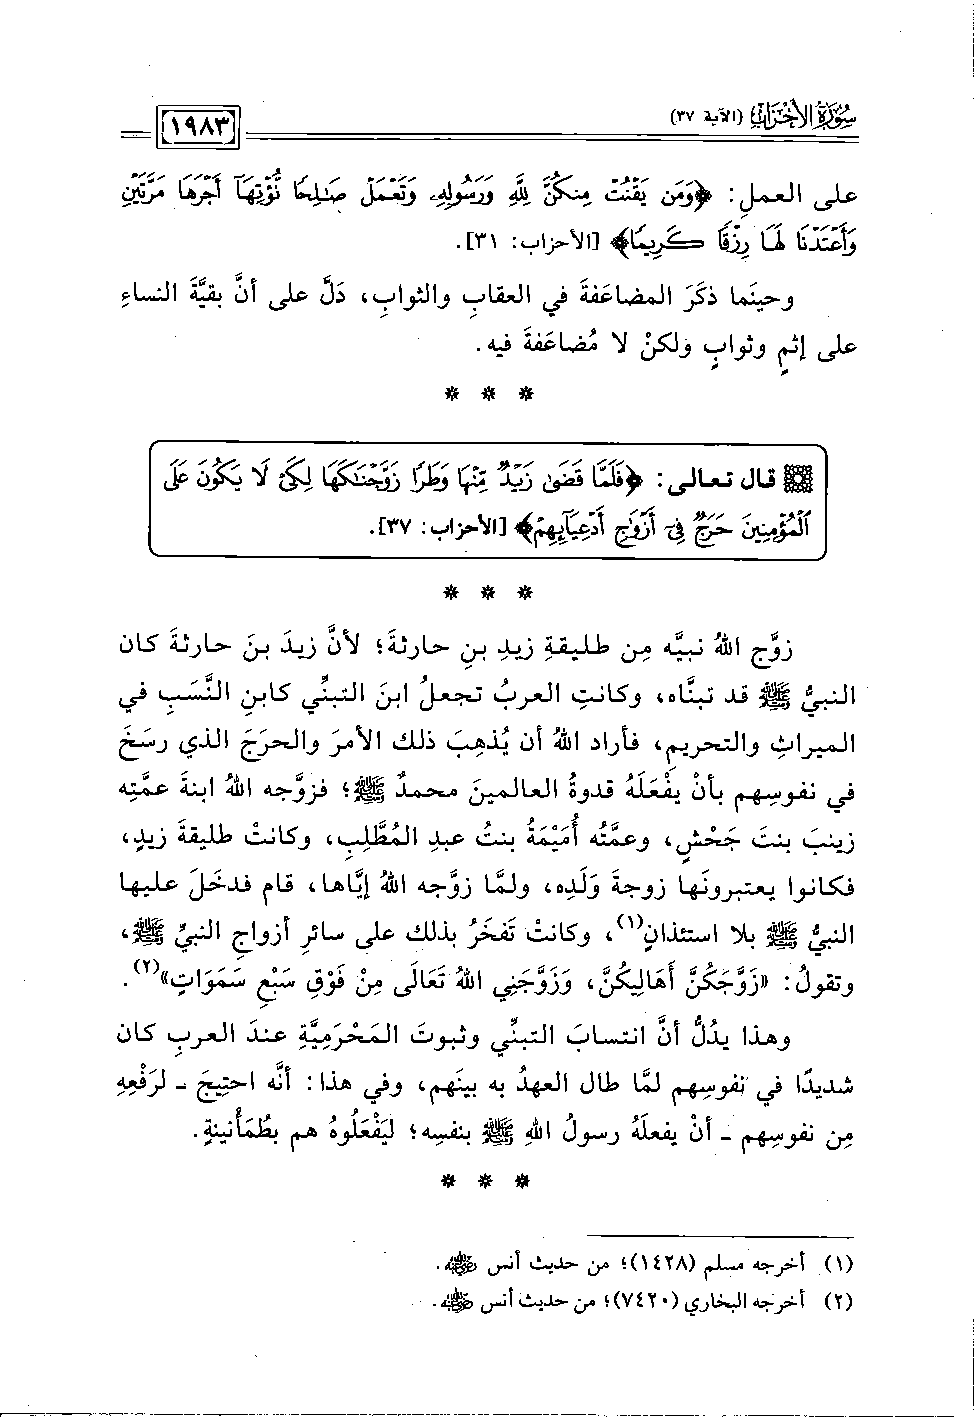 سُورَةُ الأَحْزَابِ (الآية ٣٧)
١٩٨٣
على العملِ: ﴿وَمَن يَقْنُتْ مِنكُنَّ لِلَّهِ وَرَسُولِهِۦ وَتَعْمَلْ صَٰلِحًا نُّؤْتِهَآ أَجْرَهَا مَرَّتَيْنِ
وَأَعْتَدْنَا لَهَا رِزْقًا كَرِيمًا﴾ [الأحزاب: ٣١].
وحينَما ذكَرَ المضاعَفةَ في العقابِ والثوابِ، دَلَّ على أنَّ بقيَّةَ النساءِ
على إثمٍ وثوابٍ ولكنْ لا مُضاعَفةَ فيه.
* * *
قال تعالى: ﴿فَلَمَّا قَضَىٰ زَيْدٌ مِّنْهَا وَطَرًا زَوَّجْنَٰكَهَا لِكَىْ لَا يَكُونَ عَلَى
ٱلْمُؤْمِنِينَ حَرَجٌ فِىٓ أَزْوَٰجِ أَدْعِيَآئِهِمْ﴾ [الأحزاب: ٣٧].
* * *
زوَّج اللهُ نبيَّه مِن طليقةِ زيدِ بنِ حارثةَ؛ لأنَّ زيدَ بنَ حارثةَ كان
النبيُّ ﷺ قد تبنَّاه، وكانتِ العربُ تجعلُ ابنَ التبنِّي كابنِ النَّسَبِ في
الميراثِ والتحريمِ، فأراد اللهُ أن يُذهِبَ ذلك الأمرَ والحرَجَ الذي رسَخَ
في نفوسِهم بأنْ يفْعَلَهُ قدوةُ العالمينَ محمدٌ ﷺ؛ فزوَّجه اللهُ ابنةَ عمَّتِه
زينبَ بنتَ جَحْشٍ، وعمَّتُه أُمَيْمَةُ بنتُ عبدِ المُطَّلِبِ، وكانتْ طليقةَ زيدٍ،
فكانوا يعتبرونَها زوجةَ وَلَدِه، ولمَّا زوَّجه اللهُ إيَّاها، قام فدخَلَ عليها
النبيُّ ﷺ بلا استئذانٍ(١)، وكانتْ تَفخَرُ بذلك على سائرِ أزواجِ النبيِّ ﷺ،
وتقولُ: «زَوَّجَكُنَّ أَهَالِيكُنَّ، وَزَوَّجَنِي اللهُ تَعَالَى مِنْ فَوْقِ سَبْعِ سَمَوَاتٍ»(٢).
وهذا يدُلُّ أنَّ انتسابَ التبنِّي وثبوتَ المَحْرَمِيَّةِ عندَ العربِ كان
شديدًا في نفوسِهم لمَّا طال العهدُ به بينَهم، وفي هذا: أنَّه احتِيجَ - لرَفْعِهِ
مِن نفوسِهم - أنْ يفعلَهُ رسولُ اللهِ ﷺ بنفسِه؛ لِيَفْعَلُوهُ هم بطُمَأْنينةٍ.
* * *
(١) أخرجه مسلم (١٤٢٨)؛ من حديث أنس رضي الله عنه.
(٢) أخرجه البخاري (٧٤٢٠)؛ من حديث أنس رضي الله عنه.